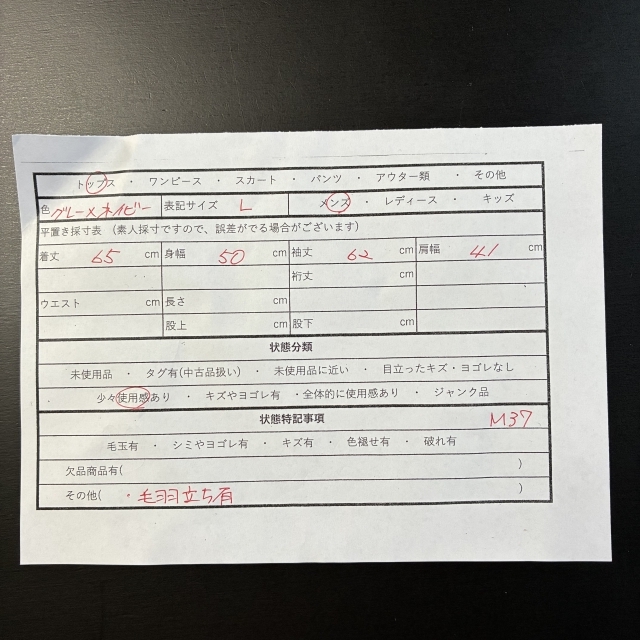 トップス ・ ワンピース ・ スカート ・ パンツ ・ アウター類 ・ その他
色 グレー×ネイビー 表記サイズ L メンズ ・ レディース ・ キッズ
平置き採寸表 （素人採寸ですので、誤差がでる場合がございます）
着丈 65 cm 身幅 50 cm 袖丈 62 cm 肩幅 41 cm
cm 裄丈 cm
ウエスト cm 長さ cm
股上 cm 股下 cm
状態分類
未使用品 ・ タグ有(中古品扱い) ・ 未使用品に近い ・ 目立ったキズ・ヨゴレなし
少々使用感あり ・ キズやヨゴレ有 ・全体的に使用感あり ・ ジャンク品
状態特記事項 M37
毛玉有 ・ シミやヨゴレ有 ・ キズ有 ・ 色褪せ有 ・ 破れ有
欠品商品有( )
その他( ・毛羽立ち有 )